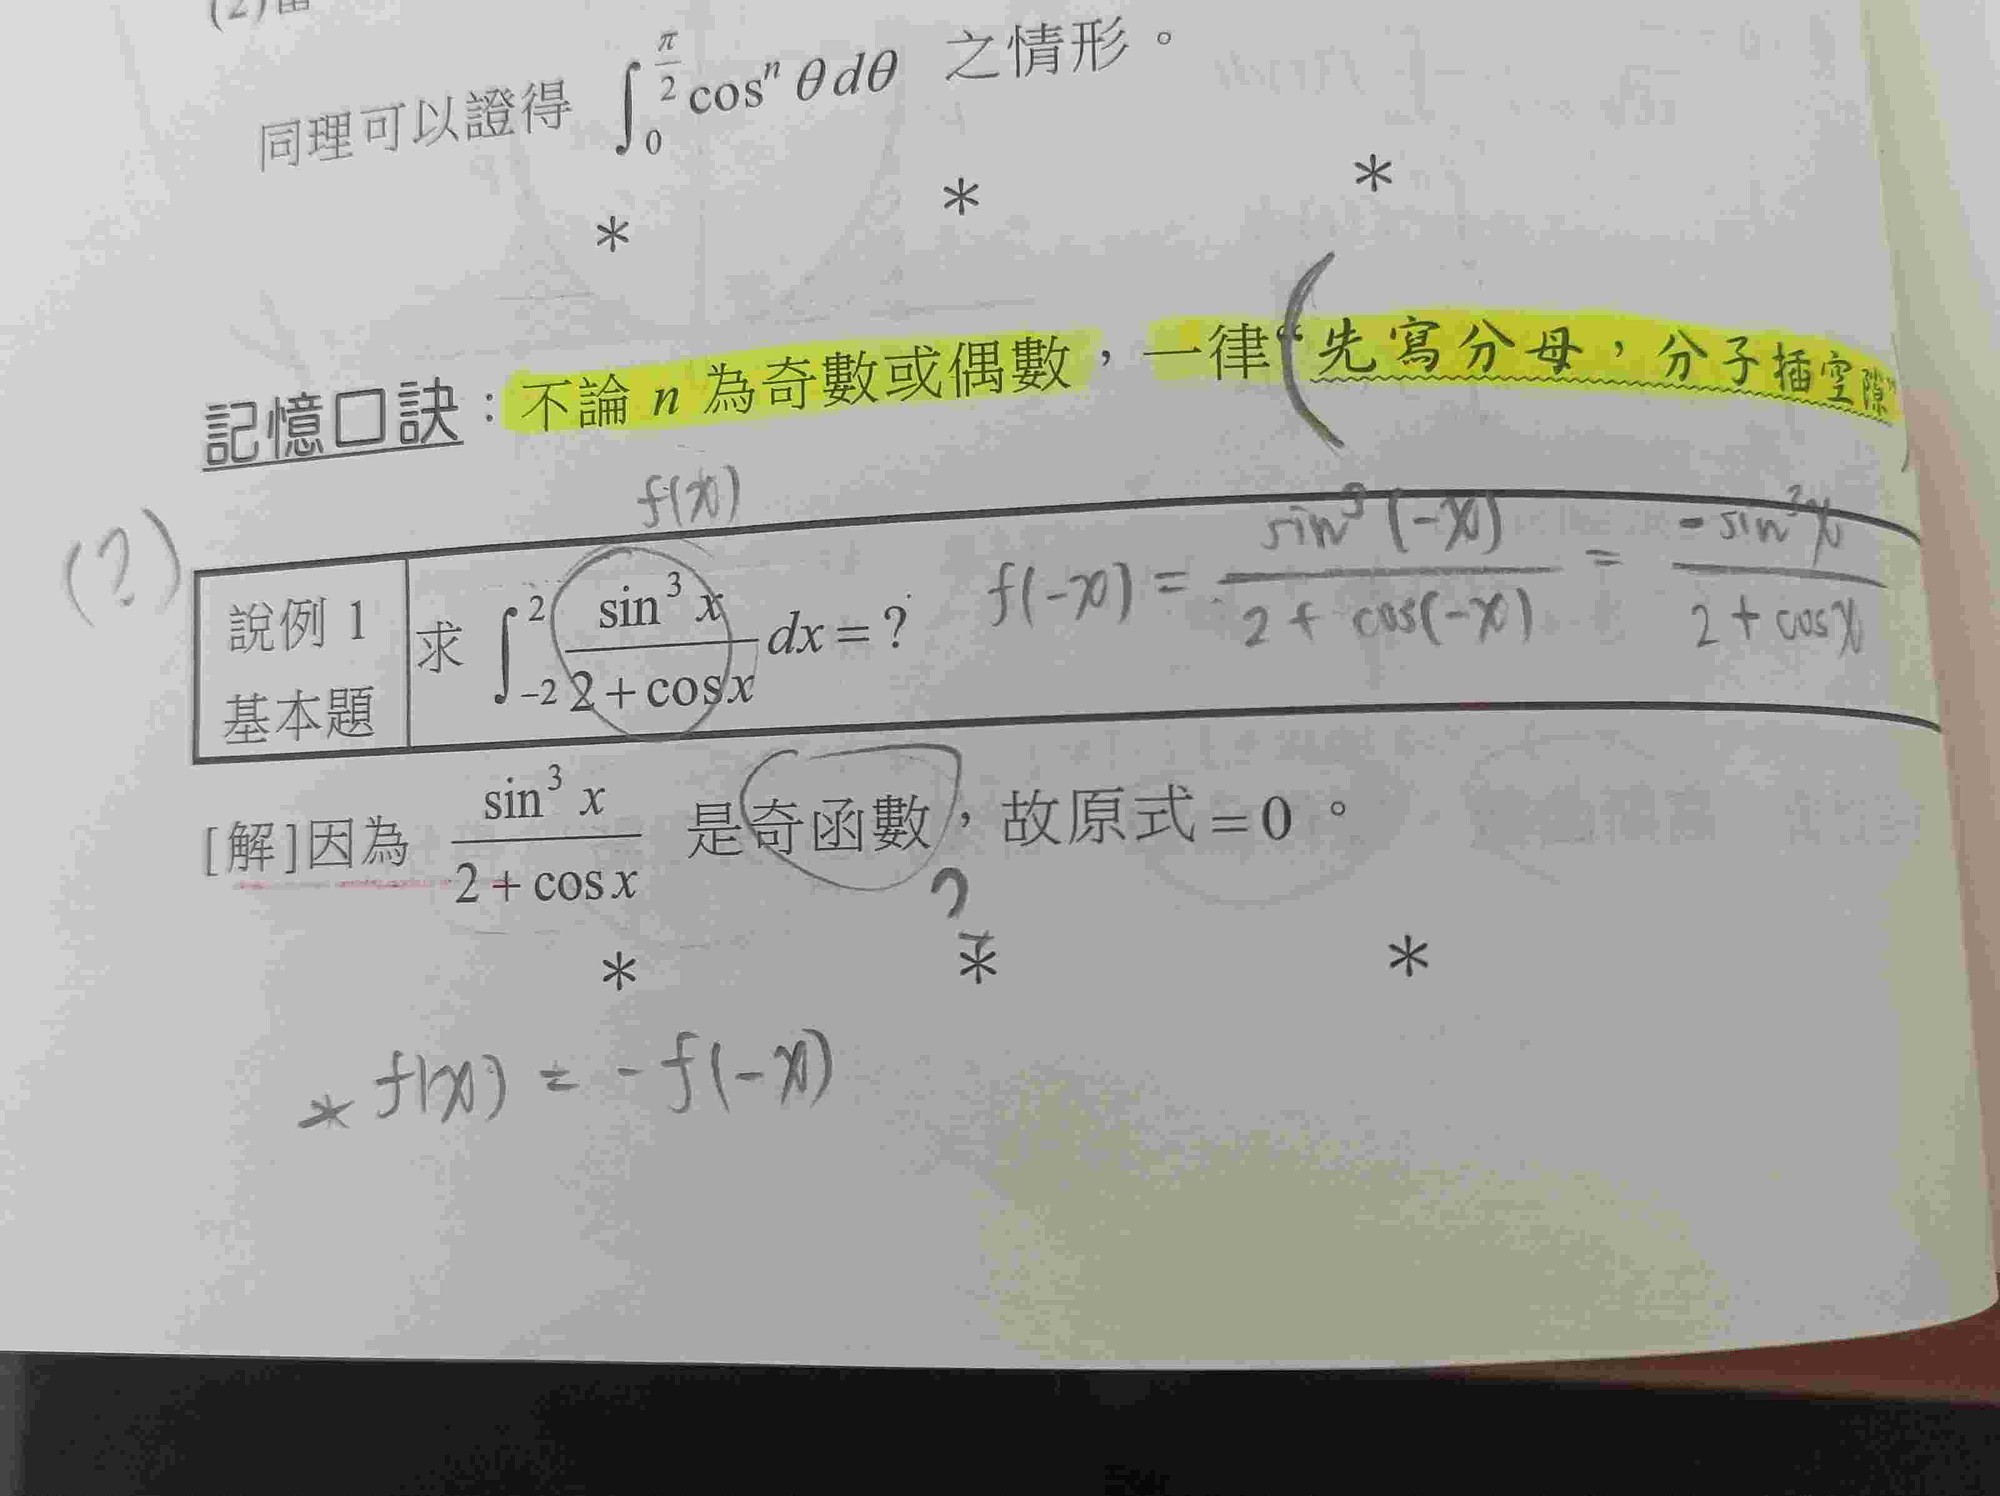 (2)當
同理可以證得 ∫_0^{π/2} cosⁿ θ dθ 之情形。
* * *
記憶口訣：不論 n 為奇數或偶數，一律“先寫分母，分子插空隙”
f(x)
(?)
說例 1
基本題
求 ∫_{-2}^{2} sin³ x / (2 + cos x) dx = ?
f(-x) = sin³(-x) / (2 + cos(-x)) = -sin³x / (2 + cosx)
[解]因為 sin³ x / (2 + cos x) 是奇函數，故原式 = 0。
?
* * *
* f(x) = -f(-x)